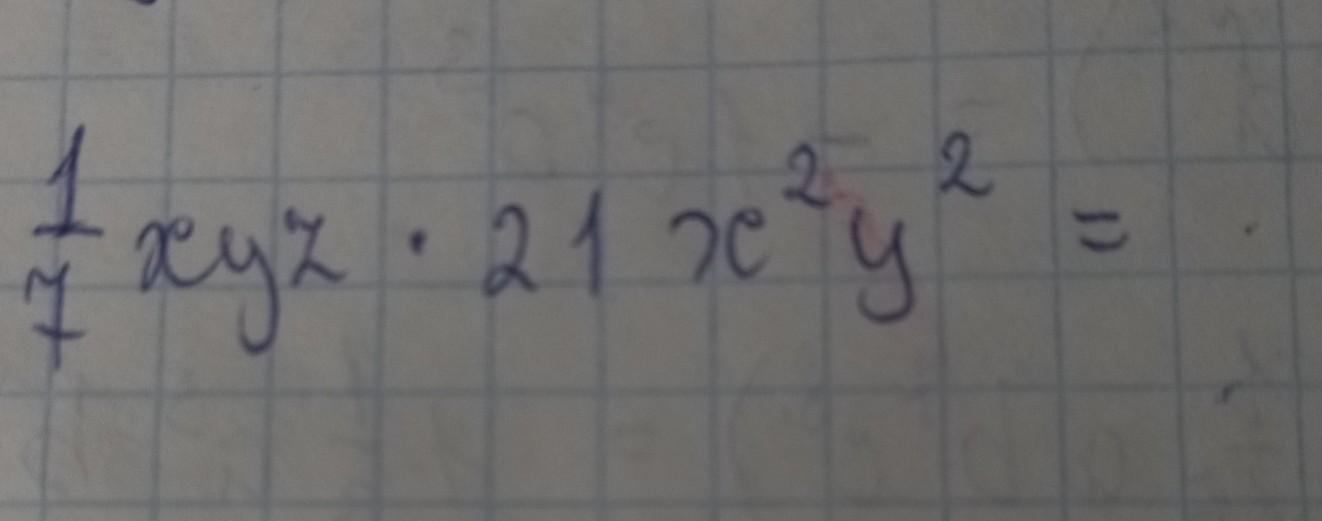 1/7 xyz · 21 x²y² =